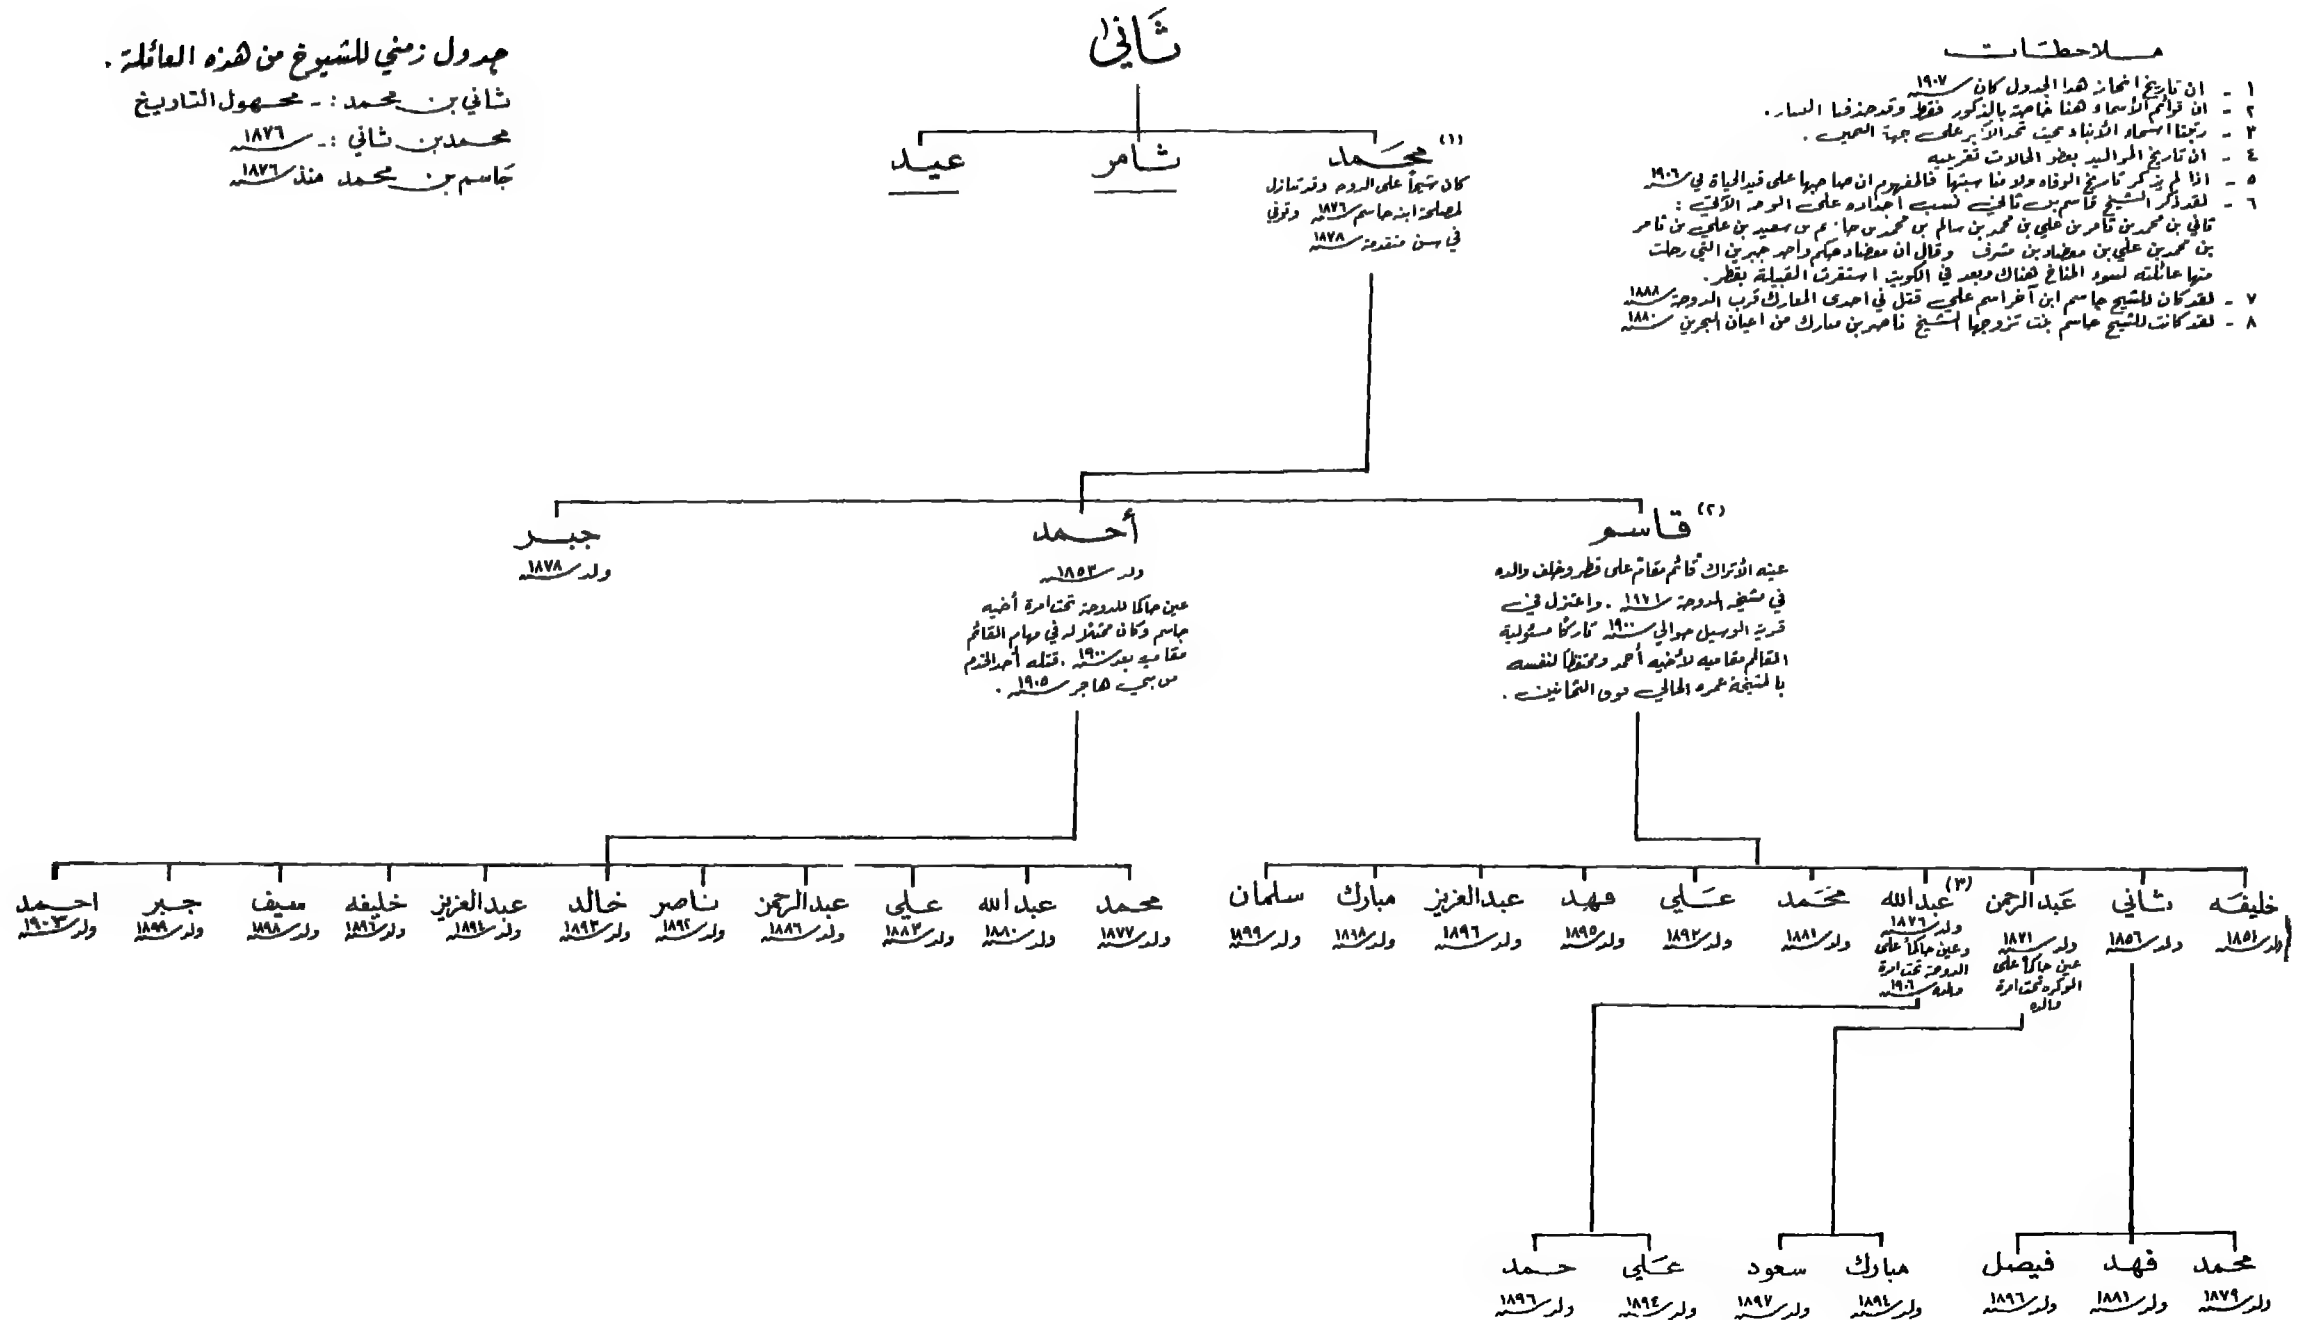 ثاني
ملاحظات
١ - ان تاريخ انجاز هذا الجدول كان سنة ١٩٠٧
٢ - ان قوائم الأسماء هنا خاصة بالذكور فقط وقد حذفنا
٣ - رتبنا اسماء الأبناء بحيث نجد الأكبر على جهة اليمين .
٤ - ان تاريخ المواليد بعض الحالات تقريبيه
٥ - اذا لم يذكر تاريخ الوفاه ولا مناسبتها فالمفهوم ان صاحبها على قيد الحياة في سنة ١٩٠٦
٦ - لقد ذكر الشيخ قاسم بن ثاني نسب اجداده على الوجه الآتي :
ثاني بن محمد بن ثامر بن علي بن محمد بن سالم بن محمد بن جاسم بن سعيد بن علي بن ثامر
بن محمد بن علي بن معضاد بن مشرف وقال ان معضاد حكم واحد جبرين التي رحلت
منها عائلته لسوء المناخ هناك وبعد في الكويت استقرت القبيلة بقطر .
٧ - لقد كان للشيخ جاسم ابن آخر اسم علي قتل في احدى المعارك قرب الدوحة سنة ١٨٨٨
٨ - لقد كانت للشيخ جاسم بنت تزوجها الشيخ ناصر بن مبارك من اعيان البحرين سنة ١٨٨٠
جدول زمني للشيوخ من هذه العائلة .
ثاني بن محمد :- مجهول التاريخ
محمد بن ثاني :- سنة ١٨٧٦
جاسم بن محمد منذ سنة ١٨٧٦
محمد (١)
كان شيخاً على الدوحه وقد تنازل
لمصلحة ابنه جاسم سنة ١٨٧٦ وتوفي
في سن متقدمة سنة ١٨٧٨
ثامر
عيد
قاسم (٢)
عينه الأتراك قائم مقام على قطر وخلف والده
في مشيخة الدوحة سنة ١٩٧٦ . واعتزل في
قرية الوسيل حوالي سنة ١٩٠٠ تاركا مسئولية
القائم مقاميه لأخيه أحمد ومحتفظا لنفسه
بالمشيخة عمره الحالي فوق الثمانين .
أحمد
ولد سنة ١٨٥٣
عين حاكما للدوحة تحت امرة أخيه
جاسم وكان ممثلا له في مهام القائم
مقاميه بعد سنة ١٩٠٠ . قتله أحد الخدم
من بني هاجر سنة ١٩٠٥ .
جبر
ولد سنة ١٨٧٨
خليفه
ولد سنة ١٨٥١
ثاني
ولد سنة ١٨٥٦
عبد الرحمن
ولد سنة ١٨٧١
عين حاكما على
الوكره تحت امرة
والده
عبد الله (٣)
ولد سنة ١٨٧٦
وعين حاكما على
الدوحة تحت امرة
والده سنة ١٩٠٦
محمد
ولد سنة ١٨٨١
علي
ولد سنة ١٨٩٢
فهد
ولد سنة ١٨٩٥
عبد العزيز
ولد سنة ١٨٩٦
مبارك
ولد سنة ١٨٩٨
سلمان
ولد سنة ١٨٩٩
محمد
ولد سنة ١٨٧٧
عبد الله
ولد سنة ١٨٨٠
علي
ولد سنة ١٨٨٣
عبد الرحمن
ولد سنة ١٨٨٦
ناصر
ولد سنة ١٨٩٢
خالد
ولد سنة ١٨٩٣
عبد العزيز
ولد سنة ١٨٩٤
خليفه
ولد سنة ١٨٩٦
ولد سنة ١٨٩٨
جبر
ولد سنة ١٨٩٩
احمد
ولد سنة ١٩٠٣
محمد
ولد سنة ١٨٧٩
فهد
ولد سنة ١٨٨١
فيصل
ولد سنة ١٨٩٦
مبارك
ولد سنة ١٨٩٤
سعود
ولد سنة ١٨٩٧
علي
ولد سنة ١٨٩٤
حمد
ولد سنة ١٨٩٦